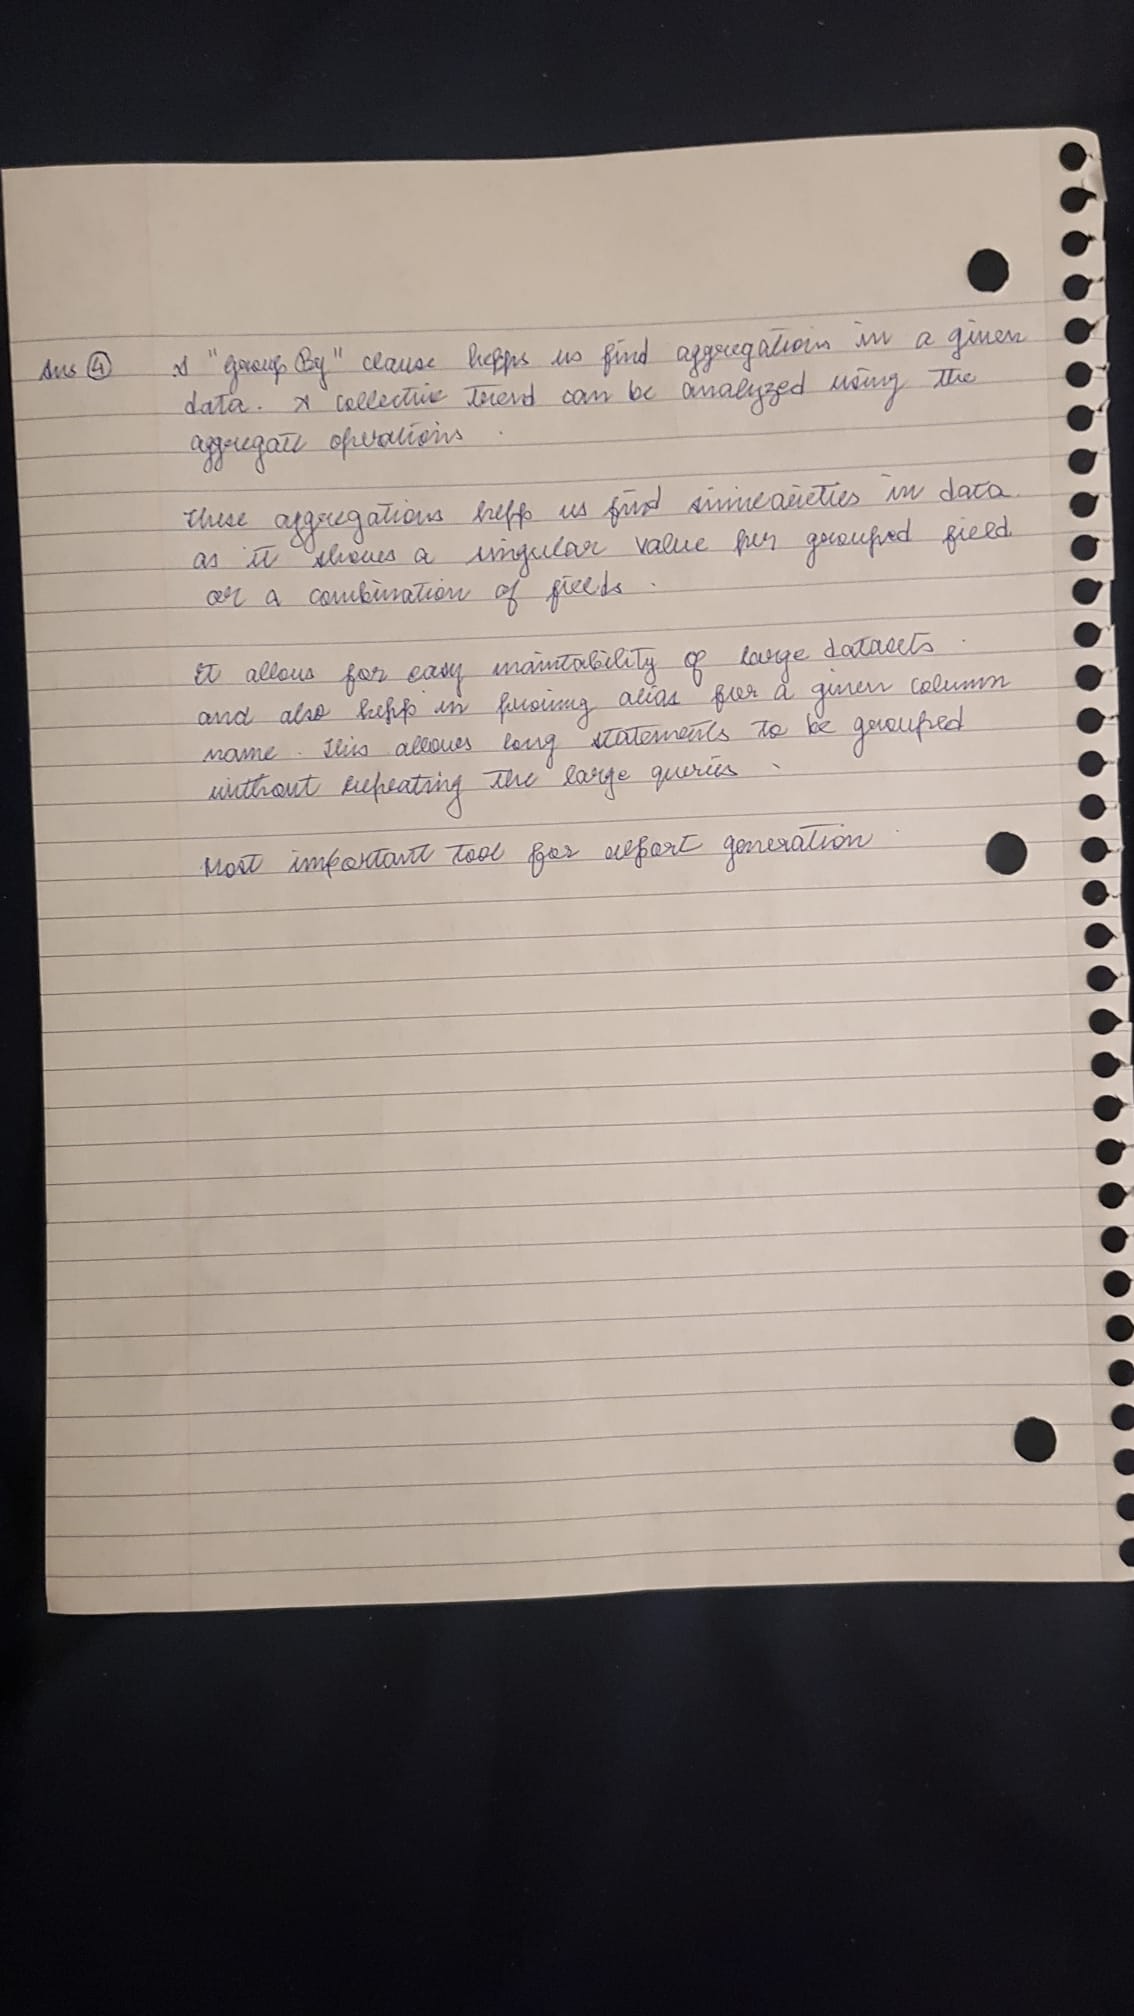 Ans ④ A "Group By" clause helps us find aggregations in a given
data. A collective trend can be analyzed using the
aggregate operations.
These aggregations help us find similarities in data
as it shows a singular value per grouped field
or a combination of fields.
It allows for easy maintability of large datasets.
and also help in proving alias for a given column
name. This allows long statements to be grouped
without repeating the large queries.
Most important tool for report generation.